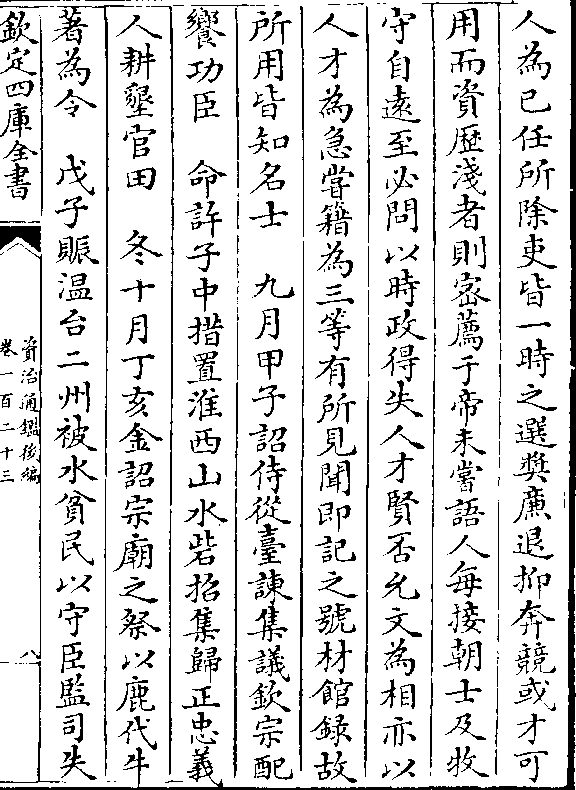 人為已任所除吏皆一時之選奬廉退抑奔競或才可
用而資歴淺者則密薦于帝未嘗語人每接朝士及牧
守自逺至必問以時政得失人才賢否允文為相亦以
人才為急嘗籍為三等有所見聞即記之號材館録故
所用皆知名士　九月甲子詔侍從臺諫集議欽宗配
饗功臣　命許子中措置淮西山水砦招集歸正忠義
人耕墾官田　冬十月丁亥金詔宗廟之祭以鹿代牛
著為令　戊子賑温台二州被水貧民以守臣監司失
欽定四庫全書
資治通鑑後編
卷一百二十三
八